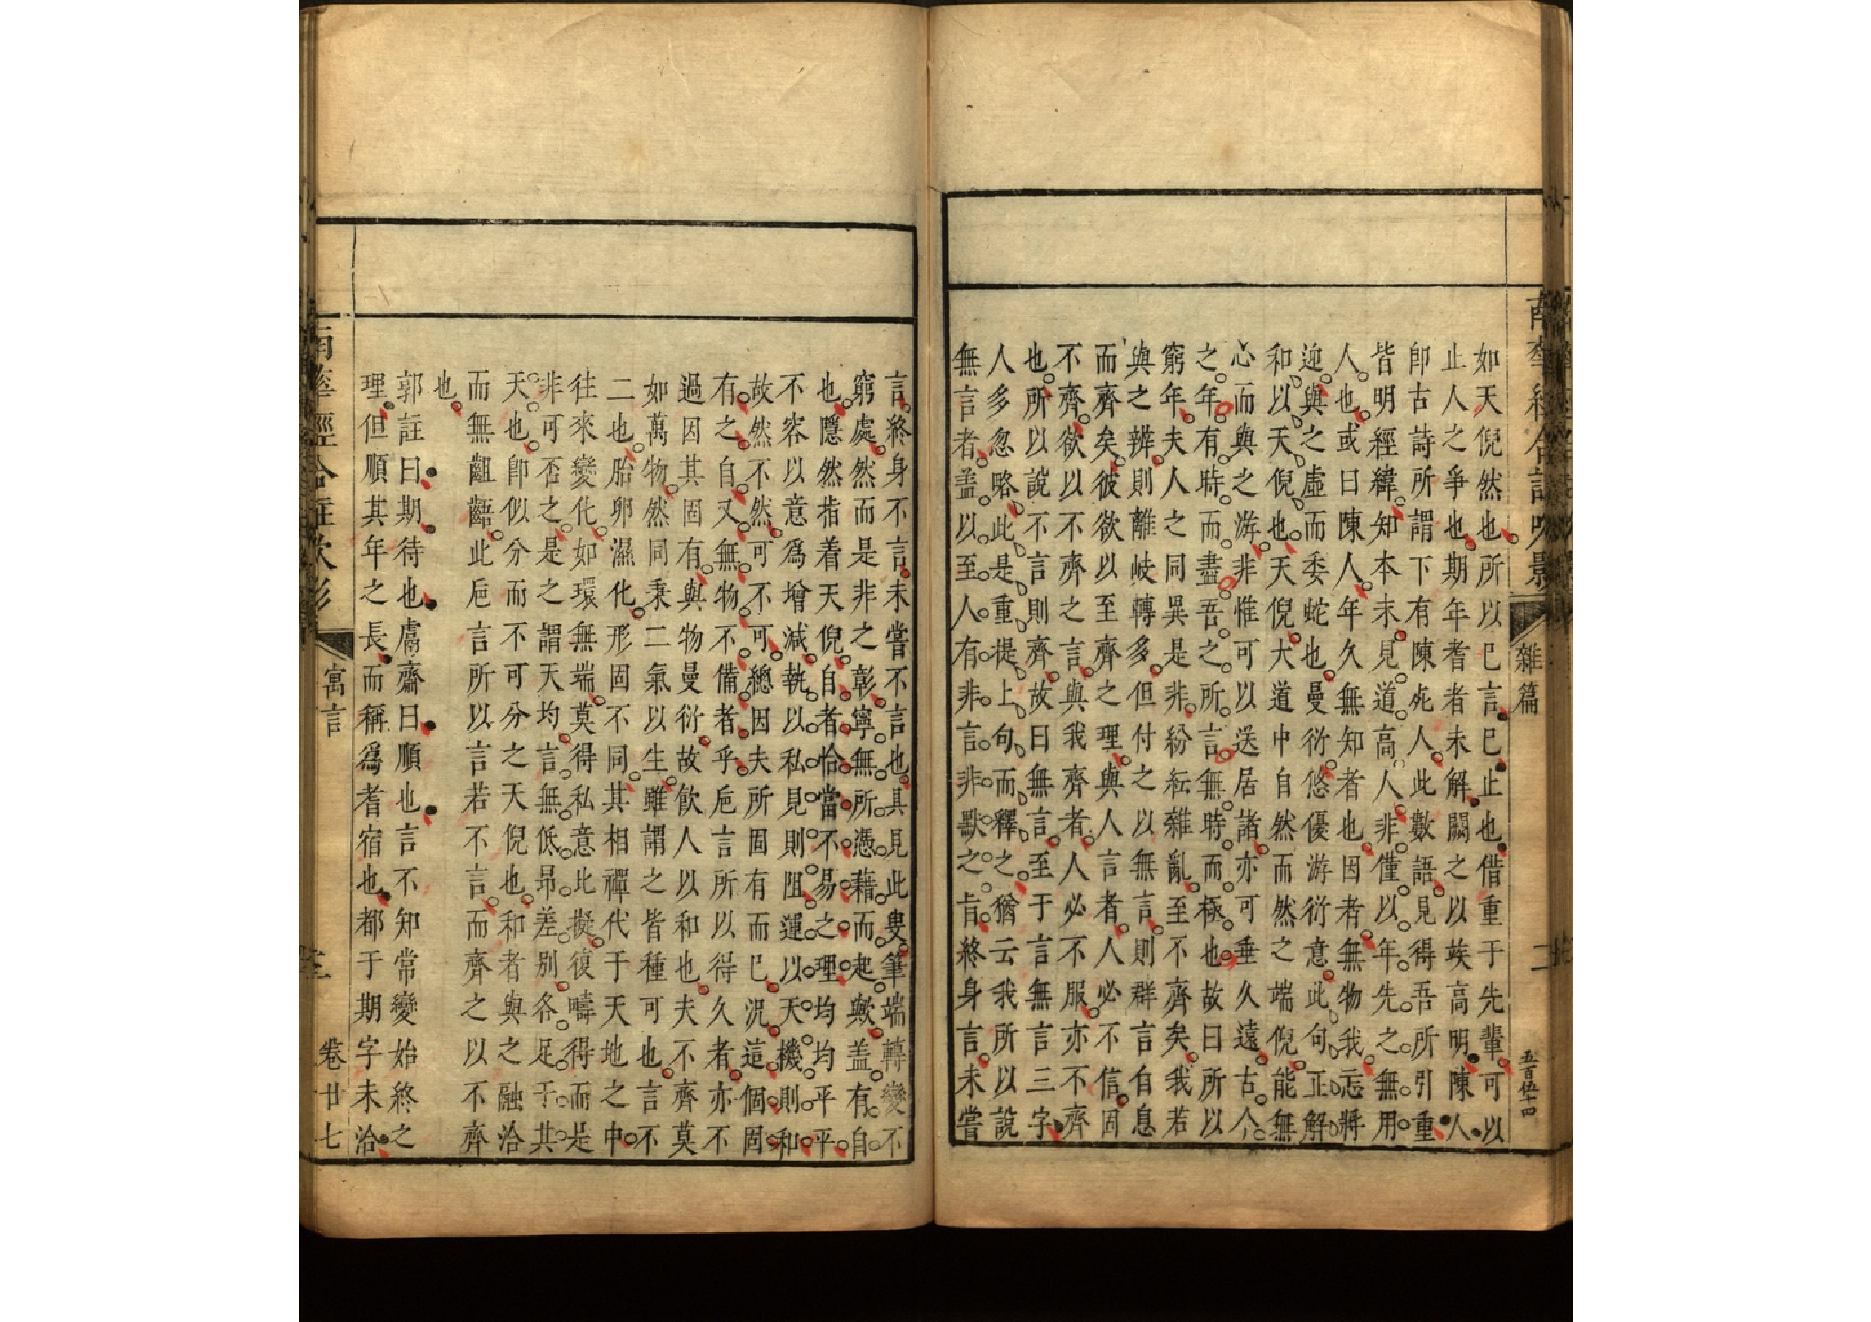 如天倪然也所以已言已止也借重于先輩可以
止人之爭也期年耆者未解闊之以族高明陳人
卽古詩所謂下有陳死人此數語見得吾所引重
皆明經緯知本末見道高人非僅以年先之無用
人也或曰陳人年久無知者也因者無物我忘將
迎與之虛而委蛇也曼衍悠優游衍意此句正解
和以天倪也天倪大道中自然而然之端倪能無
心而與之游非惟可以送居諸亦可垂久遠古今
之年有時而盡吾之所言無時而極也故曰所以
窮年夫人之同異是非紛紜雜亂至不齊矣我若
與之辨則離岐轉多但付之以無言則群言自息
而齊矣彼欲以至齊之理與人言者人必不信固
不齊欲以不齊之言與我齊者人必不服亦不齊
也所以說不言則齊故曰無言至于言無言三字
人多忽略此是重提上句而釋之猶云我所以說
無言者盖以至人有非言非歎之旨終身言未嘗
言終身不言未嘗不言也具見此叟筆端轉變不
窮處然而是非之彰寧無所憑藉而起歟盖有自
也隱然指着天倪自者恰當不易之理均均平平
不容以意爲增減執以私見則阻運以天機則和
故然不然可不可總因夫所固有而已況這個固
有之自又無物不備者乎巵言所以得久者亦不
過因其固有與物曼衍故飲人以和也夫不齊莫
如萬物然同秉二氣以生雖謂之皆種可也言不
二也胎卵濕化形固不同其相禪代于天地之中
往來變化如環無端莫得私意此擬復疇得而是
非可否之是之謂天均言無低昂差別各足于其
天也卽似分而不可分之天倪也和者與之融洽
而無齟齬此巵言所以言若不言而齊之以不齊
也
郭註曰期待也鬳齋曰順也言不知常變始終之
理但順其年之長而稱爲耆宿也都于期字未洽
雜篇
寓言
卷廿七